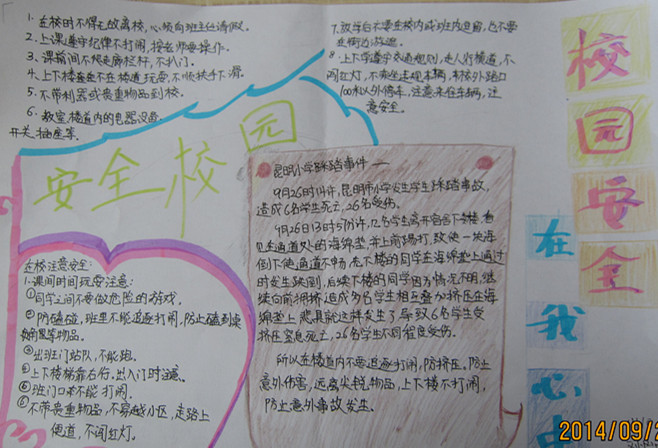 1. 在校时不得无故离校,必须向班主任请假。
2. 上课遵守纪律不打闹,按老师要操作。
3. 课前间不攀走廊栏杆,不扒门。
4. 上下楼不在楼道玩耍,不顺扶手下滑
5. 不带利器或贵重物品到校。
6. 教室楼道内的电器设备
开关、插座等
7. 放学后不要在校内或班内逗留,也不要
在街边
8. 上下学遵守交通规则,走人行横道,不
闯红灯,不乘坐违规车辆,
100米以外停车,注意来往车辆,注
意安全。
安全校园
校园安全
在我心
昆明小学踩踏事件一
9月26日14时许,昆明市小学发生学生踩踏事故,
造成6名学生死亡,26名受伤。
9月26日13时5分许,几名学生离开宿舍下楼,看
见在通道处的海绵垫,并上前打,致使一块海
倒下使通道不畅,先下楼的同学在海绵垫上通过
时发生跌倒,后续下楼的同学因为情况不明,继
续向前拥挤,造成多名学生相互叠加挤压在海
绵垫上,悲具就这样发生了,导致6名学生受
挤压窒息死亡,26名学生不同程度受伤。
所以在楼道内不要追逐打闹,防挤压,防止
意外伤害,远离尖锐物品,上下楼不打闹,
防止意外事故发生。
在校注意安全:
1. 课间时间玩耍注意:
①同学之间不要做危险的游戏。
②防磕碰,班里不能追逐打闹,防止磕到桌
角等物品。
③出班门站队,不能跑。
④上下楼梯靠右行,出入门时注意。
⑤班门口不能打闹。
⑥不带贵重物品,不易越小区,走路上
便道,不闯红灯。
2014/09/2